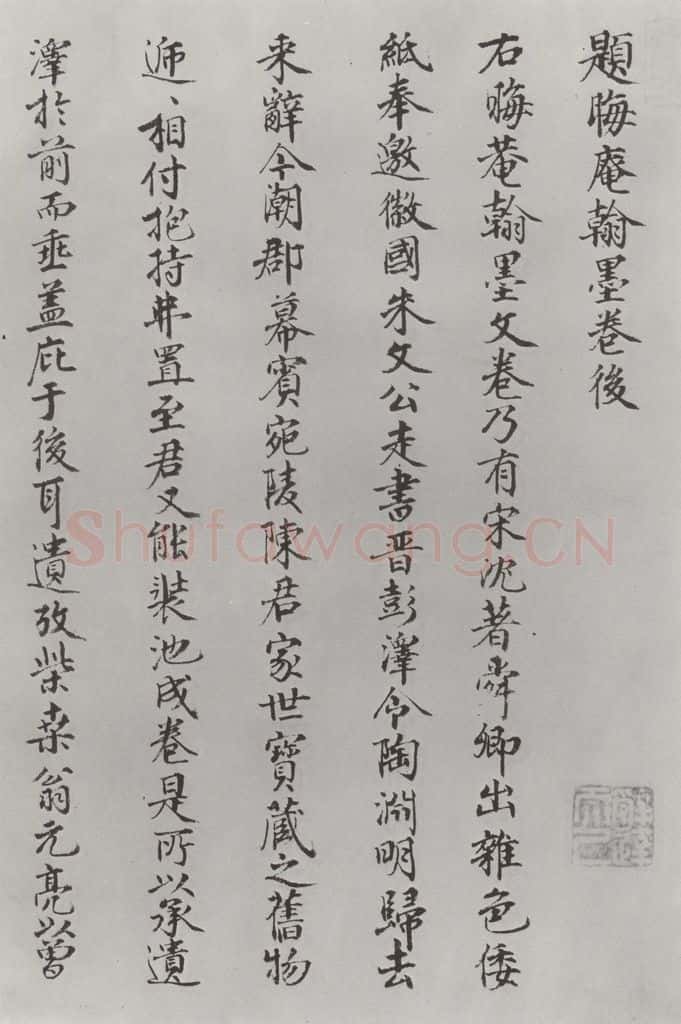 題晦庵翰墨卷後
右晦菴翰墨文卷乃有宋沈著舜卿出雜色倭
紙奉邀徽國朱文公走書晋彭澤令陶淵明歸去
来辭今潮郡幕賓宛陵陳君家世寶藏之舊物
逓、相付抱持弆置至君又能裝池成卷是所以承遺
澤於前而垂蓋庇于後耳遺攷柴桑翁元亮以曾
Shufawang.CN